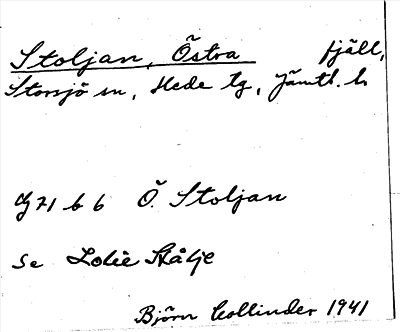 Stoljan, Östra fjäll,
Storsjö sn, Hede tg, Jämtl. l.
Gg 71 b 6 Ö. Stoljan
Se Lolie Stålje
Björn Collinder 1941